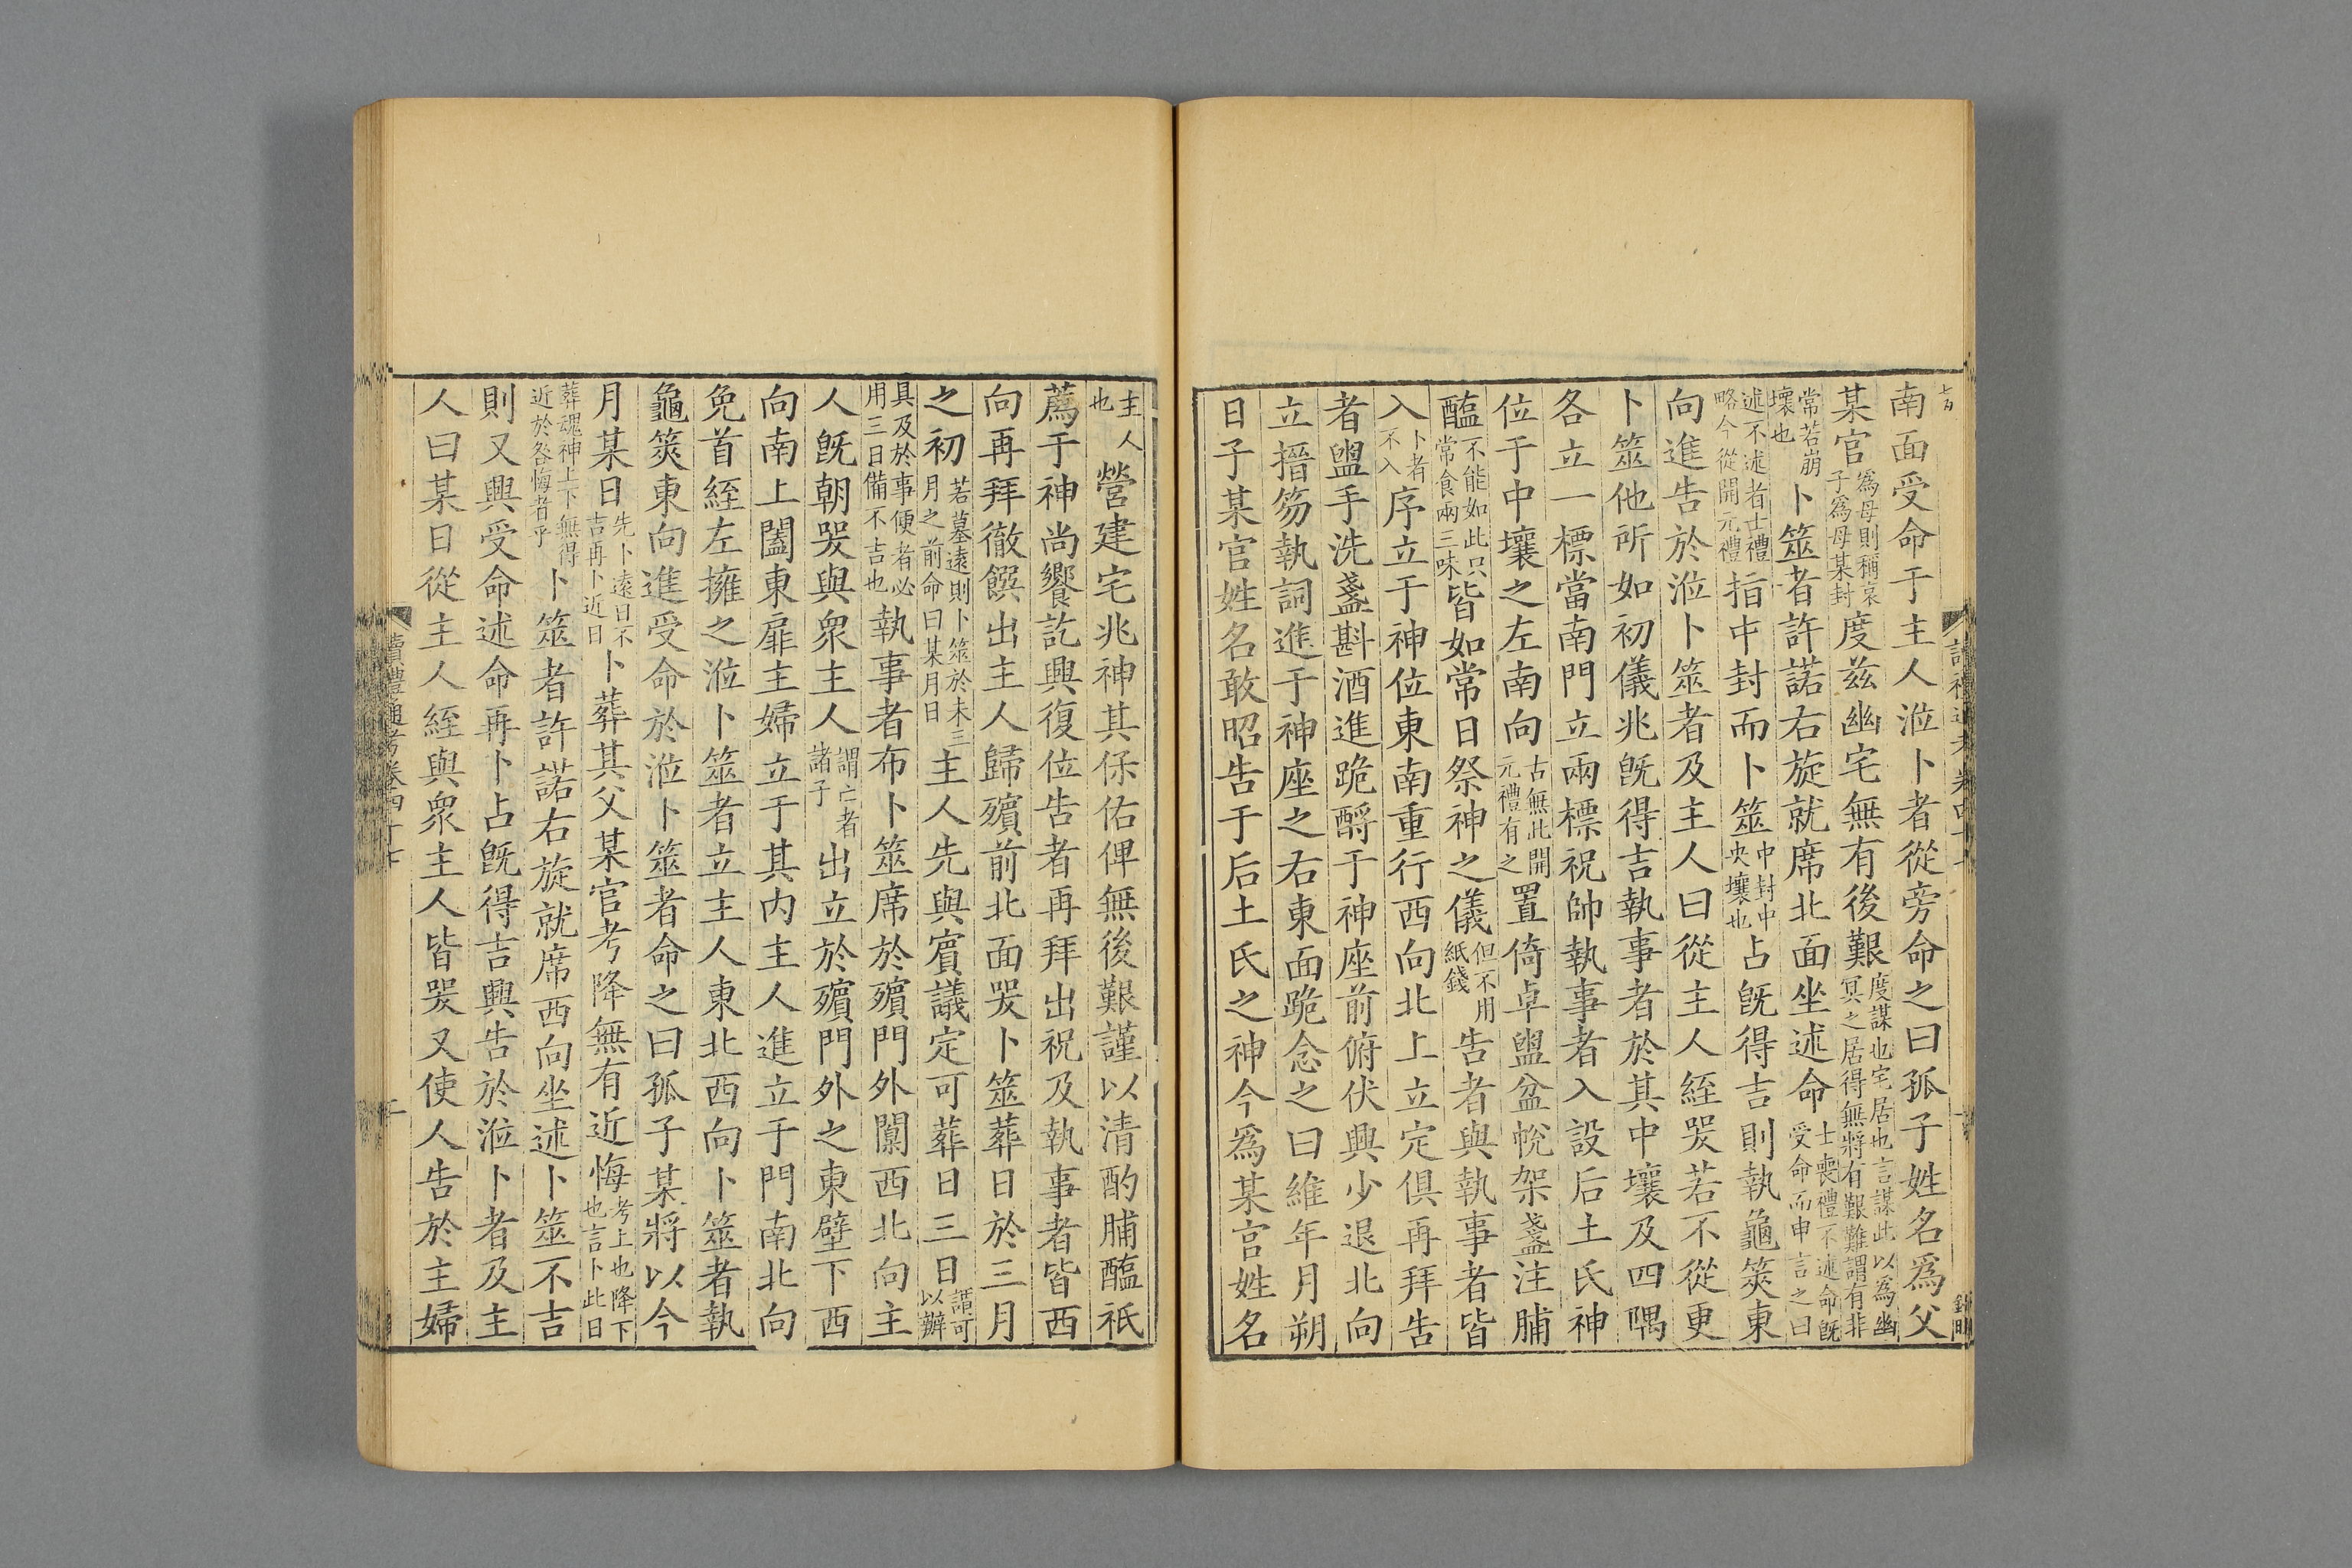 南面受命于主人涖卜者從旁命之曰孤子姓名爲父
某官爲母則稱哀子爲母某封度兹幽宅無有後艱度謀也宅居也言謀此以爲幽冥之居得無將有艱難謂有非
常若崩壞也卜筮者許諾右旋就席北面坐述命士喪禮不述命旣受命而申言之曰
述不述者士禮略今從開元禮指中封而卜筮中封中央壤也占旣得吉則執龜筴東
向進告於涖卜筮者及主人曰從主人絰哭若不從更
卜筮他所如初儀兆旣得吉執事者於其中壤及四隅
各立一標當南門立兩標祝帥執事者入設后土氏神
位于中壤之左南向古無此開元禮有之置倚卓盥盆帨架盞注脯
醢不能如此只常食兩三味皆如常日祭神之儀但不用紙錢告者與執事者皆
入卜者不入序立于神位東南重行西向北上立定俱再拜告
者盥手洗盞斟酒進跪酹于神座前俯伏興少退北向
立搢笏執詞進于神座之右東面跪念之曰維年月朔
日子某官姓名敢昭告于后土氏之神今爲某官姓名
主人也營建宅兆神其保佑俾無後艱謹以清酌脯醢祇
薦于神尚饗訖興復位告者再拜出祝及執事者皆西
向再拜徹饌出主人歸殯前北面哭卜筮葬日於三月
之初若墓遠則卜筮於未三月之前命曰某月日主人先與賓議定可葬日三日謂可以辦
具及於事便者必用三日備不吉也執事者布卜筮席於殯門外闑西北向主
人旣朝哭與衆主人謂亡者諸子出立於殯門外之東壁下西
向南上闔東扉主婦立于其內主人進立于門南北向
免首絰左擁之涖卜筮者立主人東北西向卜筮者執
龜筴東向進受命於涖卜筮者命之曰孤子某將以今
月某日先卜遠日不吉再卜近日卜葬其父某官考降無有近悔考上也降下也言卜此日
葬魂神上下無得近於咎悔者乎卜筮者許諾右旋就席西向坐述卜筮不吉
則又興受命述命再卜占旣得吉興告於涖卜者及主
人曰某日從主人絰與衆主人皆哭又使人告於主婦
讀禮通考卷四十七